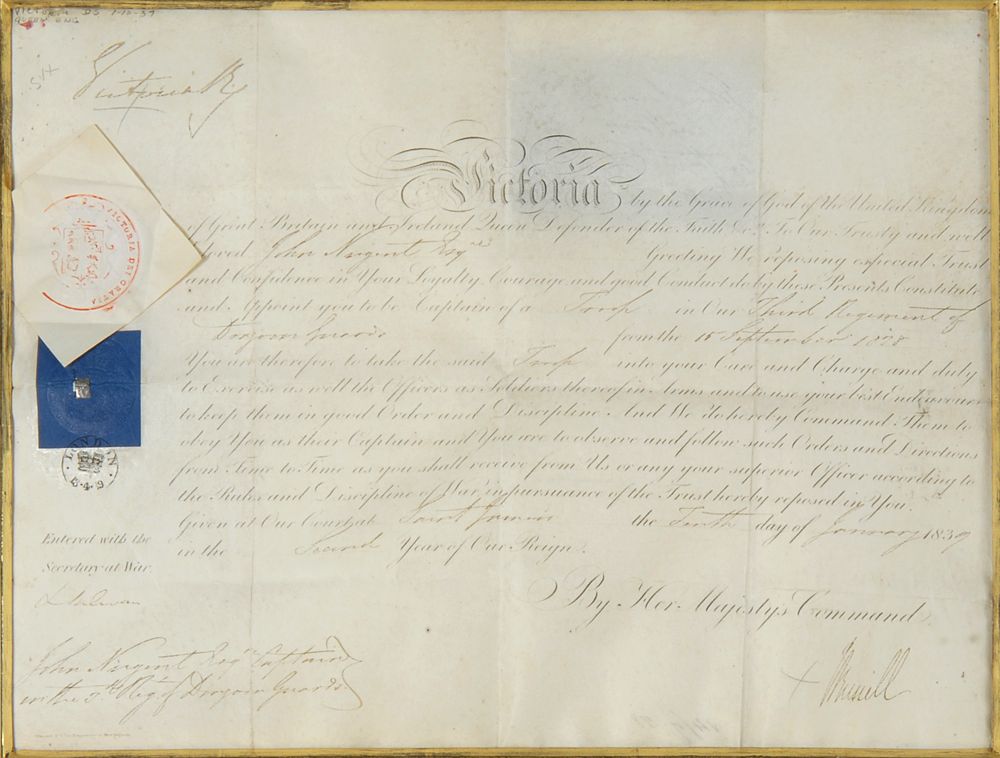 VICTORIA DS 1-10-39
QUEEN ENG
Victoria R
VICTORIA DEI GRATIA
Victoria by the Grace of God of the United Kingdom
of Great Britain and Ireland Queen Defender of the Faith &c. To Our Trusty and well
beloved John Nugent Esqre Greeting We reposing especial Trust
and Confidence in Your Loyalty, Courage and good Conduct do by these Presents Constitute
and Appoint you to be Captain of a Troop in Our Third Regiment of
Dragoon Guards from the 15 September 1838
You are therefore to take the said Troop into your Care and Charge and duty
to Exercise as well the Officers as Soldiers thereof in Arms and to use your best Endeavours
to keep them in good Order and Discipline And We do hereby Command Them to
obey You as their Captain and You are to observe and follow such Orders and Directions
from Time to Time as you shall receive from Us or any your superior Officer according to
the Rules and Discipline of War in pursuance of the Trust hereby reposed in You.
Given at Our Court at Saint James's the Tenth day of January 1839
in the Second Year of Our Reign.
LONDON
Entered with the
Secretary at War
By Her Majesty's Command
John Nugent Esqr Captain
in the 3rd Regt of Dragoon Guards
JRussell